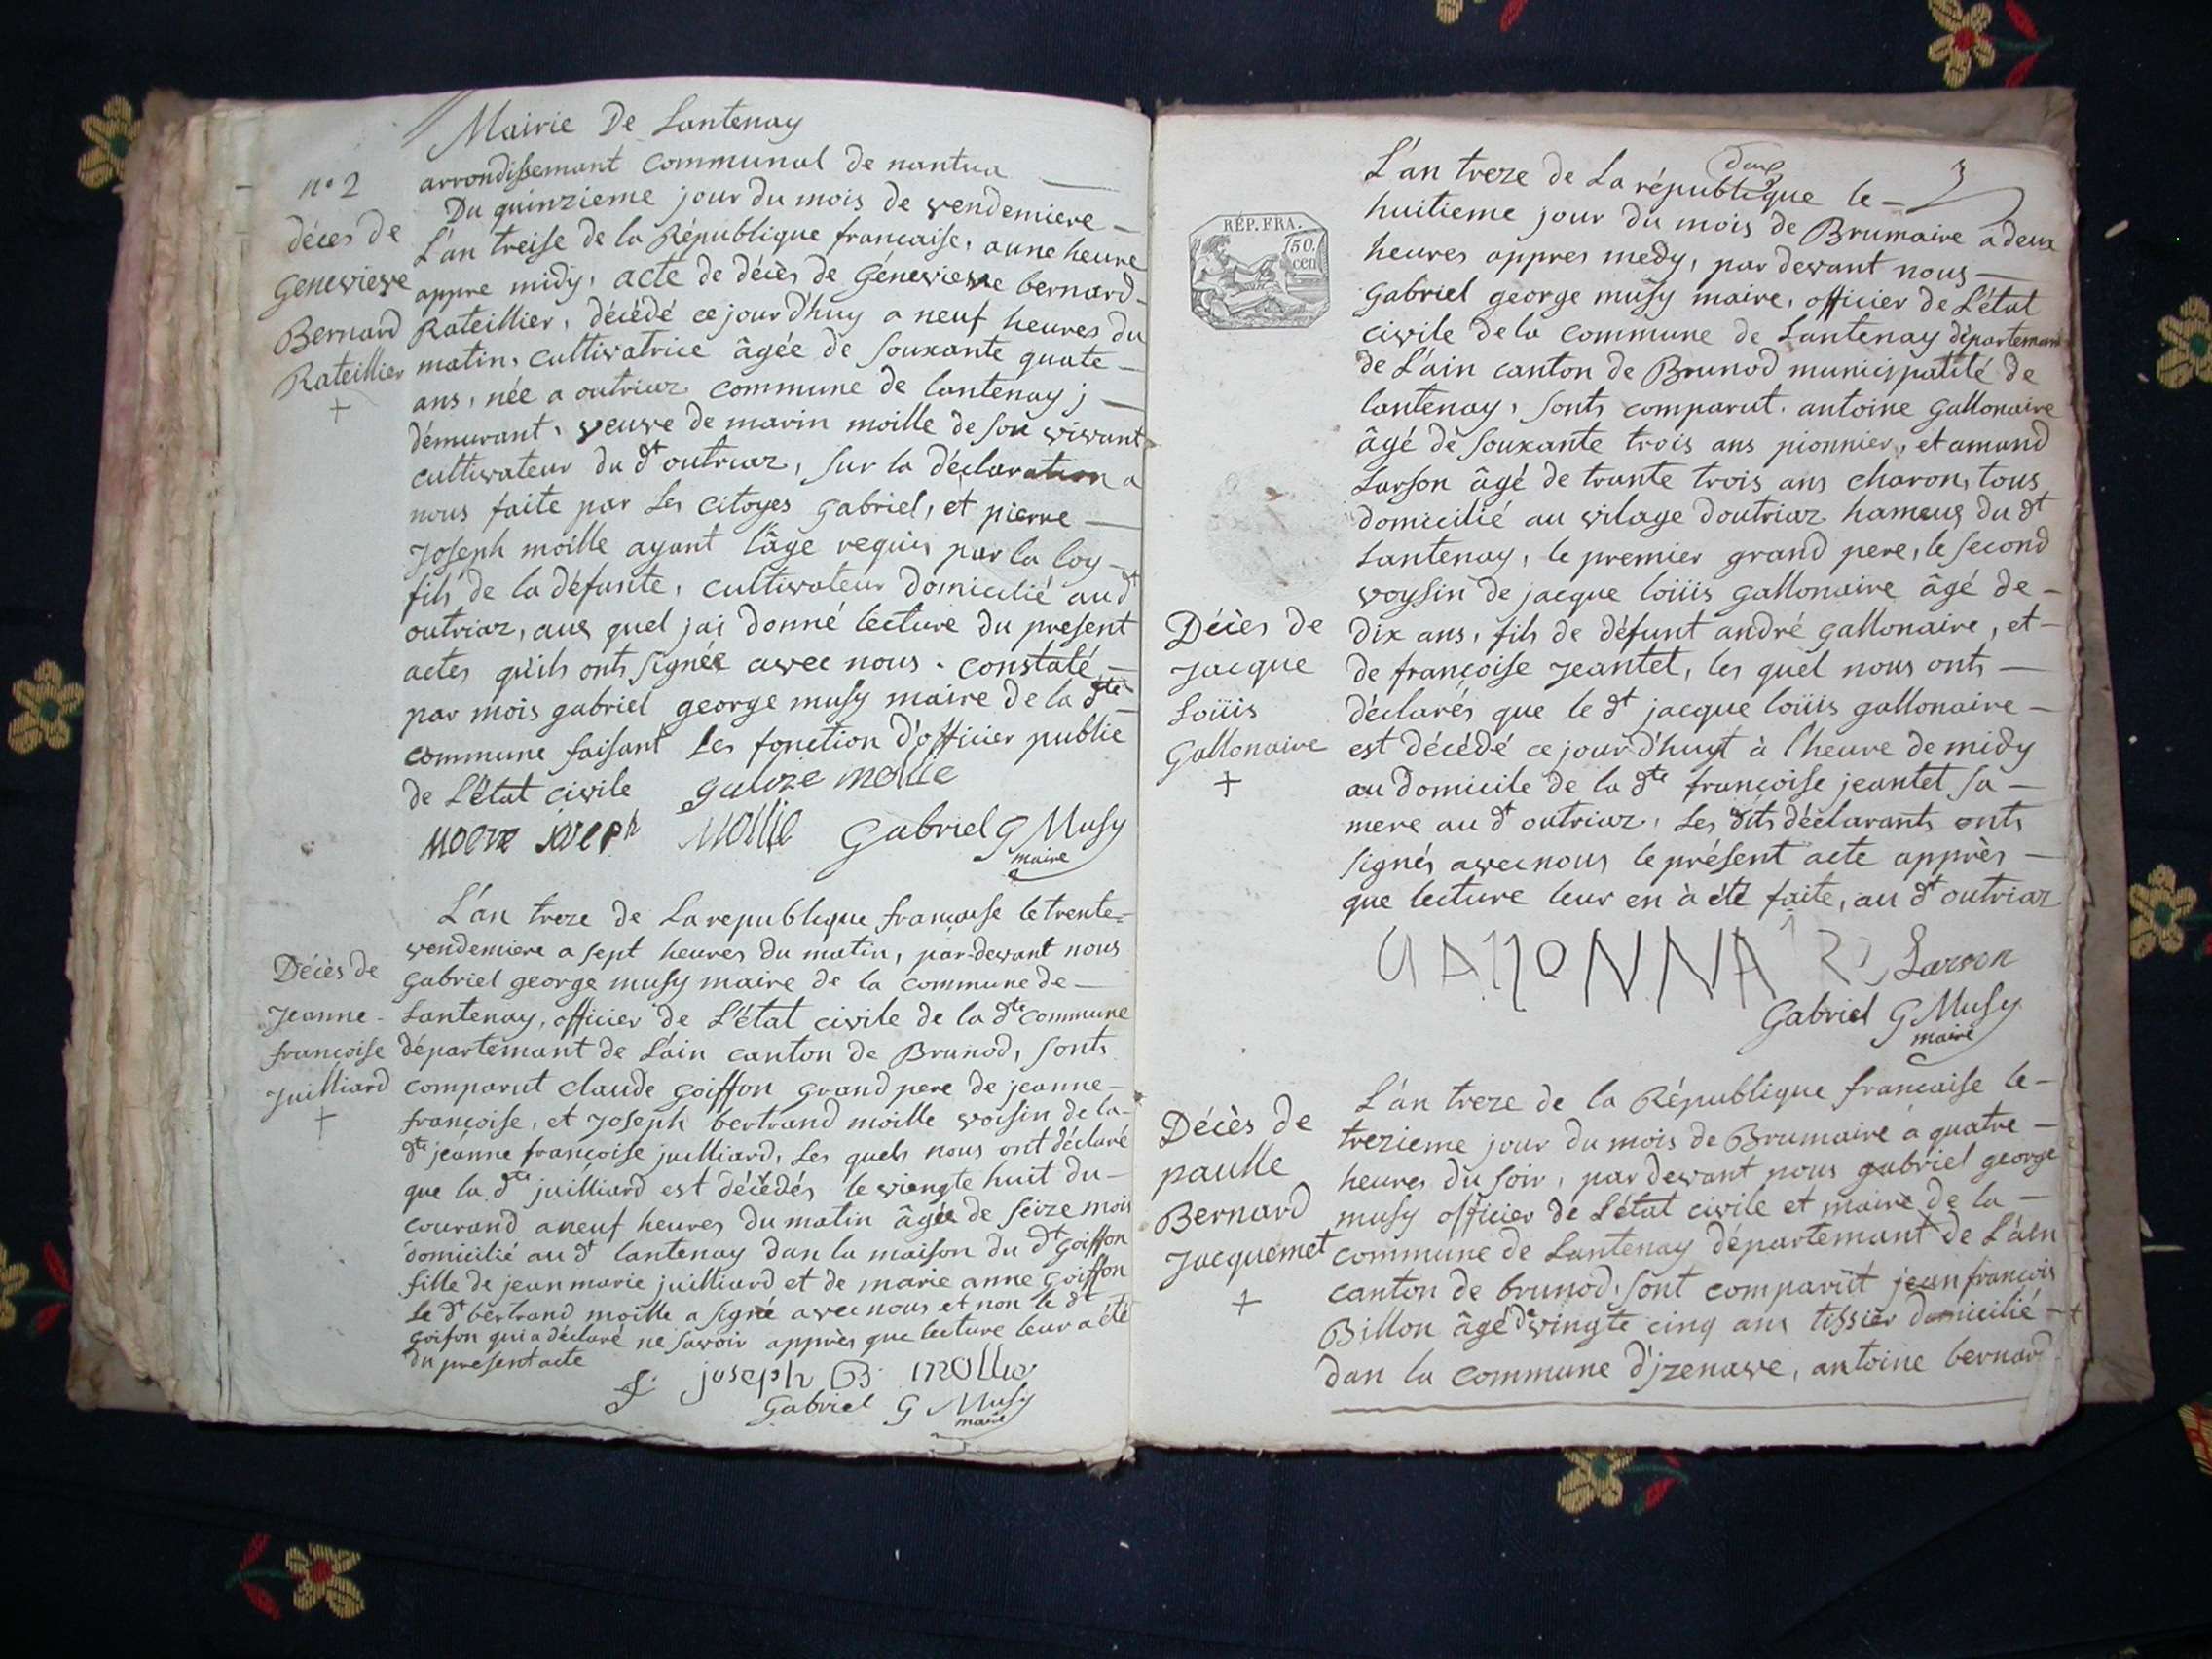 Mairie De Lantenay
arrondissemant communal de nantua
n° 2
Du quinzieme jour du mois de vendemiere
L'an treise de la République francaise, a une heure
appre midy, acte de décès de Génevieve bernard
Rateillier, décédé ce jour d'huy a neuf heures du
matin, cultivatrice âgée de souxante quate
ans, née a outriaz commune de lantenay j
démurant, veuve de marin moille de son vivant
cultivateur du dt outriaz, sur la déclaration a
nous faite par Les citoyes gabriel, et pierre
Joseph moille ayant l'âge requis par la loy
fils de la défunte, cultivateur domicilié au dt
outriaz, aux quel jai donné lecture du present
actes qu'ils onts signée avec nous. constaté
par mois gabriel george musy maire de la dte
commune faisant Les fonction d'officier public
de L'état civile
décès de
Genevieve
Bernard
Rateillier
+
joseph mollie Gabriel G Musy
maire
L'an treze de La republique francaise le trente
vendemiere a sept heures du matin, par-devant nous
Gabriel george musy maire de la commune de
Lantenay, officier de L'état civile de la dte commune
départemant de L'ain canton de Brunod, sonts
comparut claude goiffon grand pere de jeanne
françoise, et Joseph bertrand moille voisin de la
dte jeanne françoise juilliard, Les quels nous ont déclaré
que la dte juilliard est décédés le viengte huit du
courand a neuf heures du matin âgée de seize mois
domicilié au dt lantenay dan la maison du dt goiffon
fille de jean marie juilliard et de marie anne goiffon
Le dt bertrand moille a signé avec nous et non le dt
goifon qui a déclaré ne savoir apprès que lecture leur a été
du present acte
Décès de
Jeanne
françoise
Juilliard
+
joseph B mollie
Gabriel G Musy
maire
L'an treze de La république le
huitieme jour du mois de Brumaire a deux
heures appres medy, par devant nous
Gabriel george musy maire, officier de L'état
civile de la commune de Lantenay départemant
de L'ain canton de Brunod municipalité de
lantenay, sonts comparut. antoine gallonaire
âgé de souxante trois ans pionnier, et amand
Larson âgé de trante trois ans charon, tous
domicilié au vilage d'outriaz hameux du dt
Lantenay, le premier grand pere, le second
voysin de jacque loüis gallonaire âgé de
dix ans, fils de défunt andré gallonaire, et
de françoise Jeantet, les quel nous onts
déclarés que le dt jacque loüis gallonaire
est décédé ce jour d'huyt à l'heure de midy
au domicile de la dte françoise jeantet sa
mere au dt outriaz, Les dits déclarants onts
signés avec nous le présent acte apprès
que lecture leur en à été faite, au dt outriaz
RÉP. FRA.
50.
cen
Décès de
Jacque
Loüis
Gallonaire
+
Larson
Gabriel G Musy
maire
L'an treze de la République francaise le
trezieme jour du mois de Brumaire a quatre
heures du soir, par devant nous gabriel george
musy officier de L'état civile et maire de la
commune de Lantenay départemant de L'ain
canton de brunod, sont comparüt jean francois
Billon âgé de vingte cinq ans tissier domicilié
dan la commune d'jzenave, antoine bernard
Décès de
paulle
Bernard
Jacquemet
+